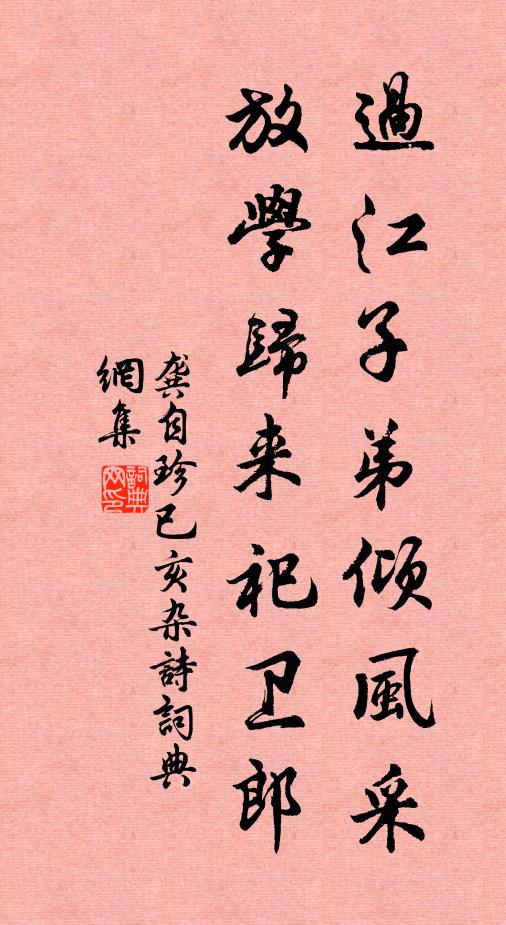 過江子弟傾風采
放學歸来祀卫郎
龚自珍己亥杂詩詞典
網集
詞典
网印